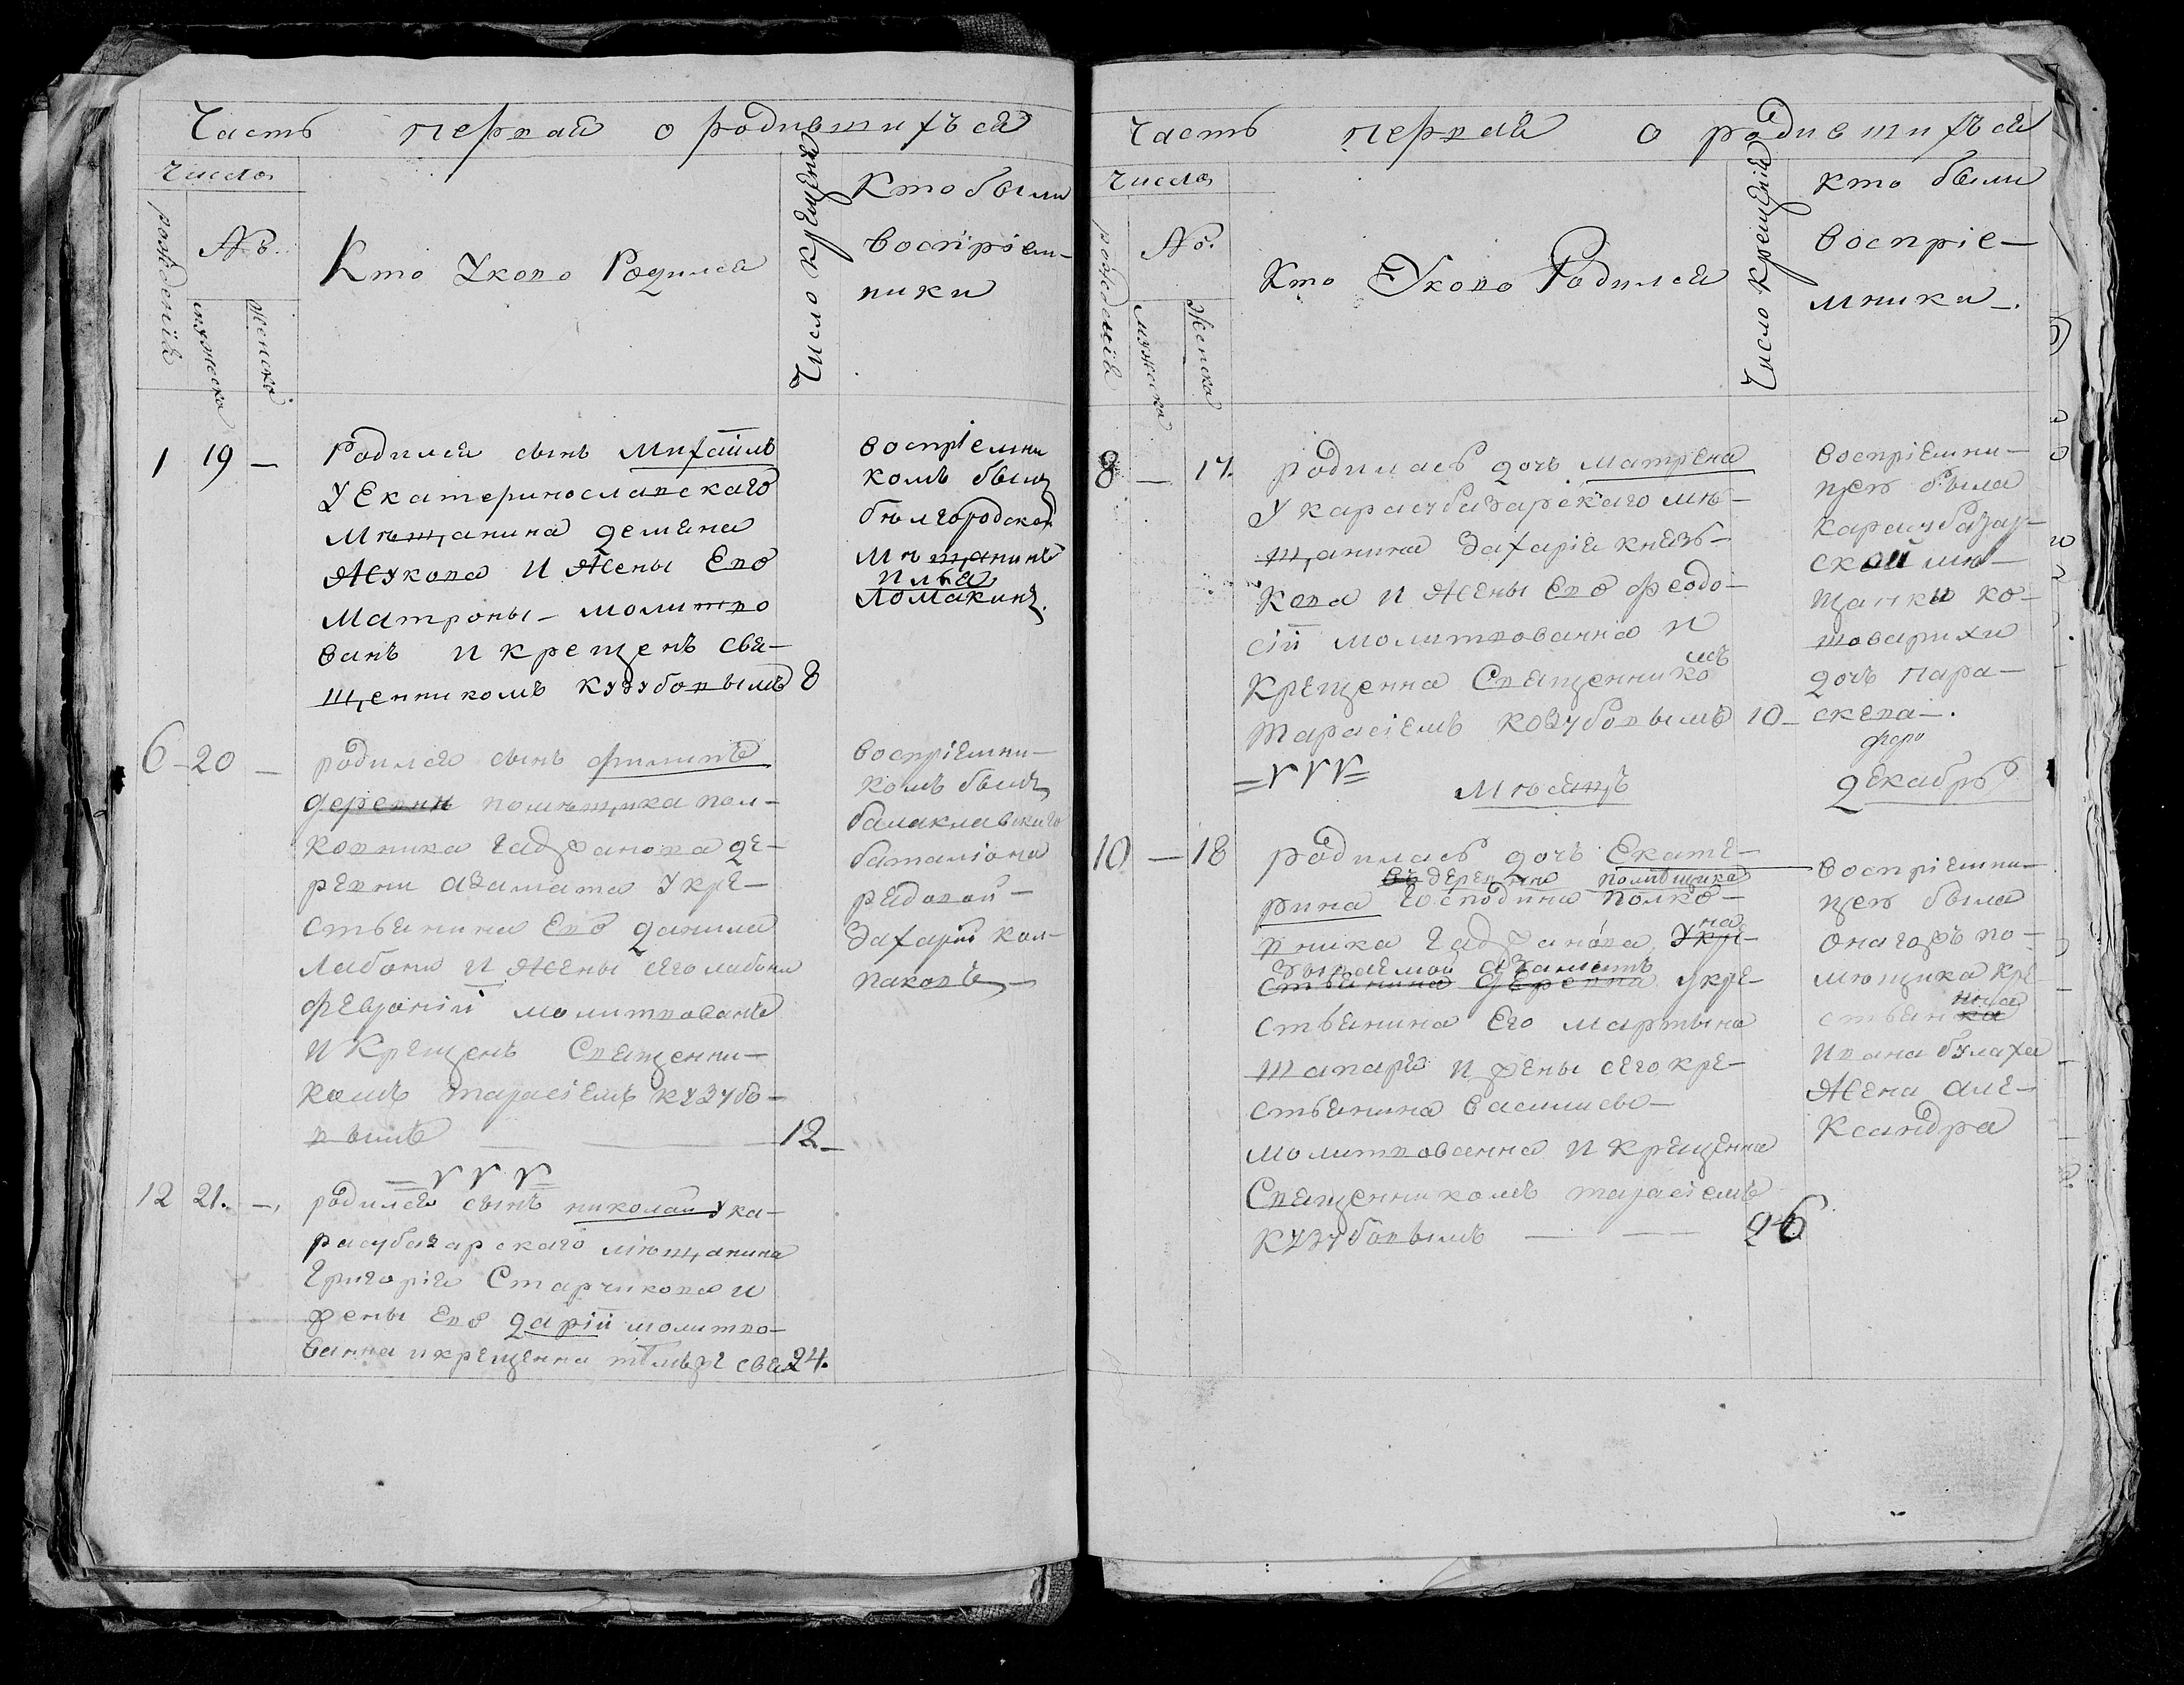 Часть первая о родившихъся
Числа
рожденія
№.
мужеска
женска
Кто Укого Родился
Число крещенія
Кто были
воспріем-
ники
1 19 —
Родился сынъ Михаилъ
У Екатеринославскаго
Мѣщанина демяна
Жукова И Жены Его
Матроны – молитво
ванъ и крещенъ свя-
щенникомъ кузубовымъ 8
воспріемни
комъ былъ
бѣлгородской
Мѣщанинъ
илья
Ломакинъ.
6 – 20 —
родился сынъ филипъ
деревни помѣщика пол-
ковника гаджанова де-
ревни азамата У кре-
стьянина Его данила
Лабони И Жены сего лабони
февроніи молитвованъ
и Крещенъ Священни-
комъ тарасіемъ кузубо-
вымъ — — 12 –
воспріемни-
комъ былъ
балаклавскаго
баталіона
рядовой –
захарій кол-
паковъ –
12 21. –
родился сынъ николай У ка-
расубазарскаго мѣщанина
Григорія Старчикова и
жены Его даріи молитво-
ванна и крещенна тѣмъже свя 24.
Часть первая о родившихъся
Числа
рожденія
№.
мужеска
женска
Кто Укого Родился
Число крещенія
кто были
воспріе-
мники –.
8 — 17.
родилась дочь матрена
У карасубазарскаго мѣ-
щанина Захарія князь-
кова и Жены Его феодо-
сіи молитвованна и
Крещенна Священникомъ
тарасіемъ козубовымъ 10 –
воспріемни-
цею была
карасубазар-
ской мѣ-
щанки ко-
товарихи
дочь пара-
скева –.
Мѣсяцъ
декабрь
10 — 18
родилась дочь Екате-
въ деревнѣ помѣщика
рина господина полко-
вника гаджанова, Укре-
на
зываемой азаматъ
стьянина деревни укре-
стьянина Его мартына
шапаря и жены сего кре-
стьянина василисы –
молитвованна и крещенна
Священникомъ тарасіемъ
кузубовымъ — — 26
воспріемни-
цею была
онагожъ по-
мѣщика кре
стьянка
нина
ивана булаха
Жена але-
Ксандра